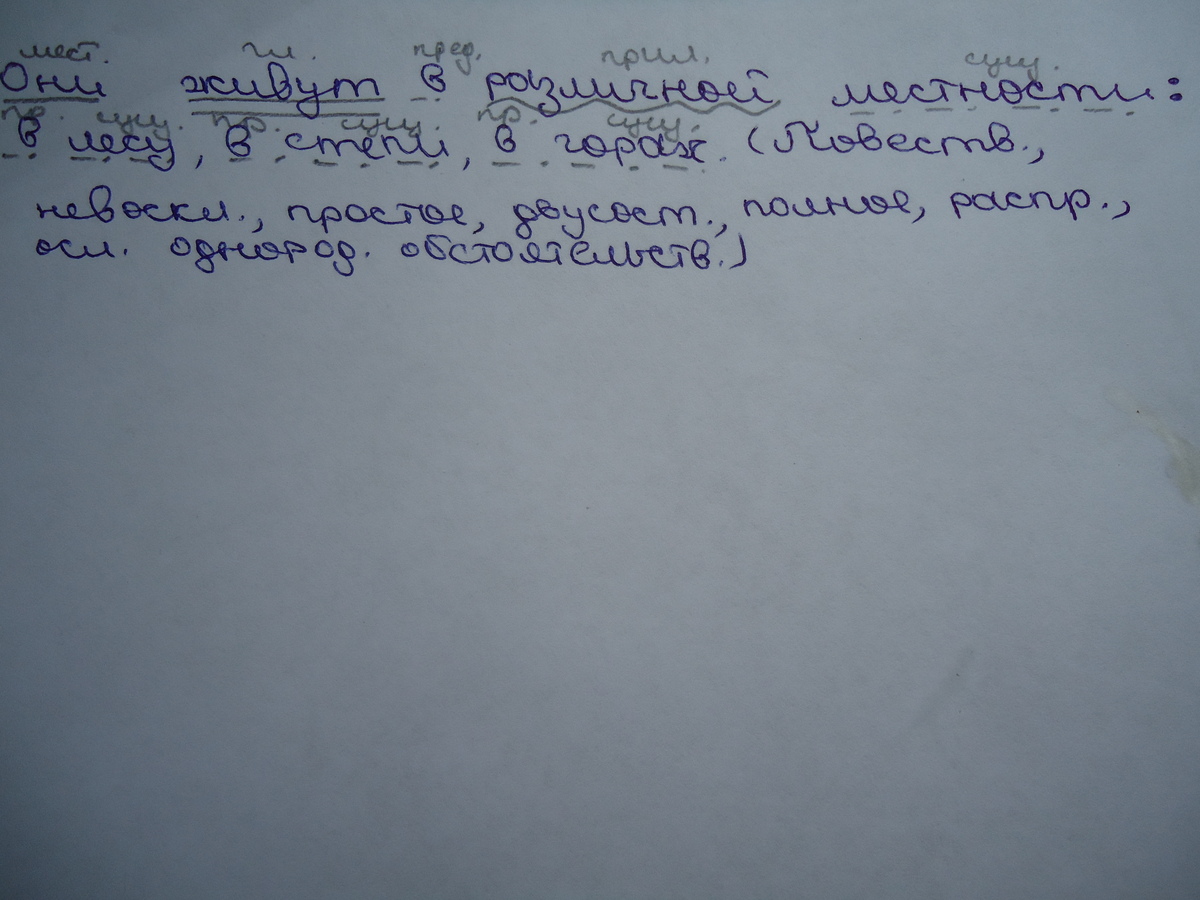 мест. гл. пред. прил. сущ.
Они живут в различной местности:
пр. сущ. пр. сущ. пр. сущ.
в лесу, в степи, в горах. (Повеств.,
невоскл., простое, двусост., полное, распр.,
осл. однород. обстоятельств.)